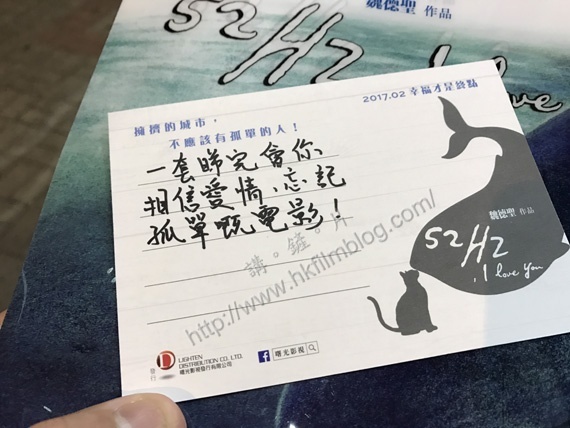 魏德聖 作品
52Hz
I love
2017.02 幸福才是終點
擁擠的城市，
不應該有孤單的人！
一套睇完會你
相信愛情、忘記
孤單嘅電影！
講。鏟。片
http://www.hkfilmblog.com/
魏德聖 作品
52Hz
, I love You
發行
LIGHTEN
DISTRIBUTION CO. LTD.
曙光影視發行有限公司
f 曙光影視